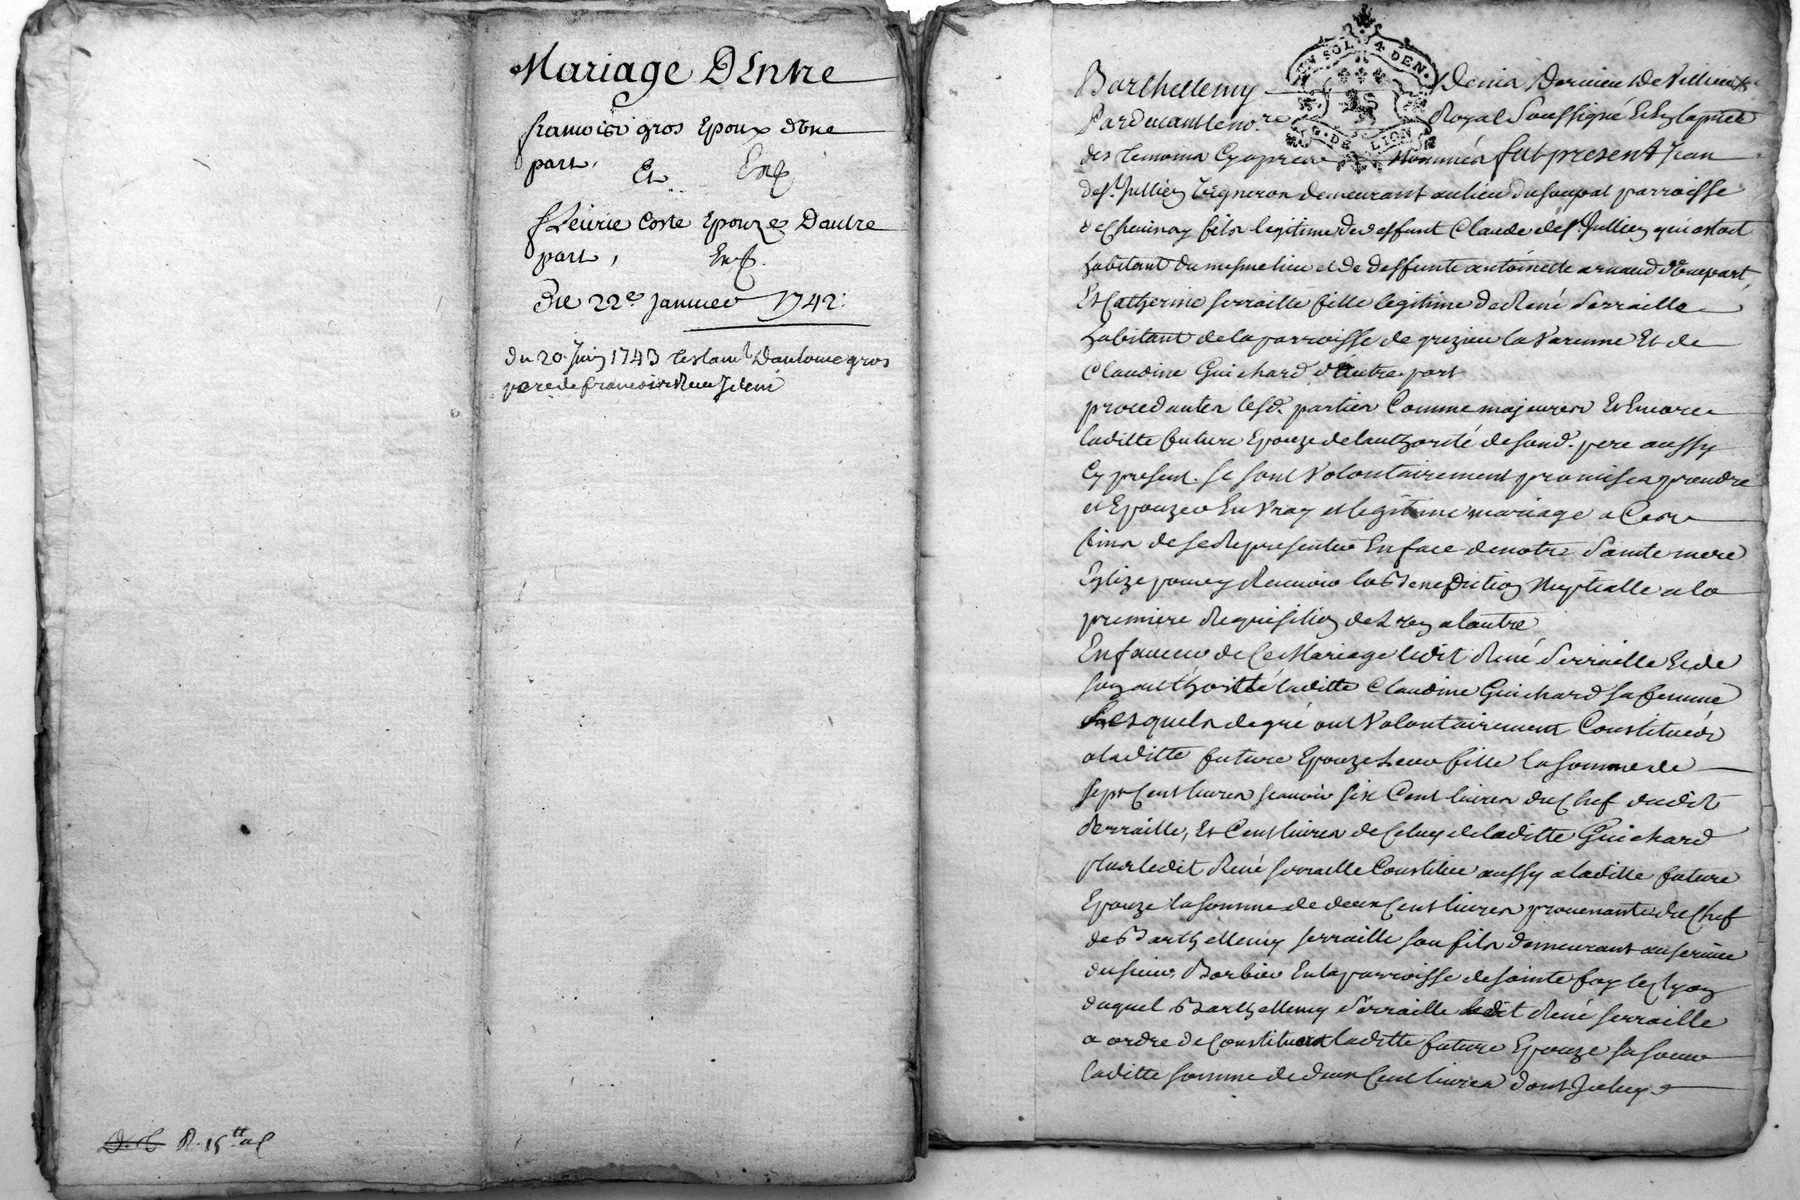 Mariage D'Entre
francois gros Epoux d'vne
part,
Et
fleurie Coste Epouze D'autre
part,
Du 22e Janvier 1742
du 20 Juin 1743 testamt D'antoine gros
pere de francois
R. 15tt
UN SOL 4 DEN.
G. DE LION
Barthellemy Denis Dervieu De Villieu
Pardevant le no.re Royal Soussigné Et En la presence
des temoins Cy apres Nommés fut present Jean
de St. Jullien Vigneron demeurant au lieu du parroisse
de Chevinay fils legitime de deffunt Claude de St. Jullien qui estoit
habitant du mesme lieu et de deffunte antoinette arnaud d'vne part,
Et Catherine Serraille fille legitime de René Serraille
habitant de la parroisse de grezieu la Varenne Et de
Claudine Guichard d'autre part
procedantes lesd. parties Comme majeures Et Encore
laditte future Epouze de l'authorité de sond. pere aussy
Cy present. Se sont Volontairement promises prendre
et Epouzer En Vray et legitime mariage a Ces
fins de se Representer En face de notre Sainte mere
Eglize pour y Recevoir la Benediction Nuptialle a la
premiere Requisition de L'vn a l'autre
En faveur de Ce Mariage ledit René Serraille Et de
son authorité laditte Claudine Guichard sa femme
Lesquels de gré ont Volontairement Constitués
a laditte future Epouze Leur fille la somme de
sept Cent livres scavoir six Cent livres du Chef dudit
Serraille, Et Cent livres de Celuy de laditte Guichard
plus ledit René Serraille Constitue aussy a laditte future
Epouze la somme de deux Cent livres provenante du Chef
de Barthellemy Serraille son fils demeurant au service
du sieur Barbier En la parroisse de sainte foy les Lyon
duquel Barthellemy Serraille ledit René Serraille
a ordre de Constituer a laditte future Epouze sa soeur
laditte somme de deux Cent livres dont Iceluy